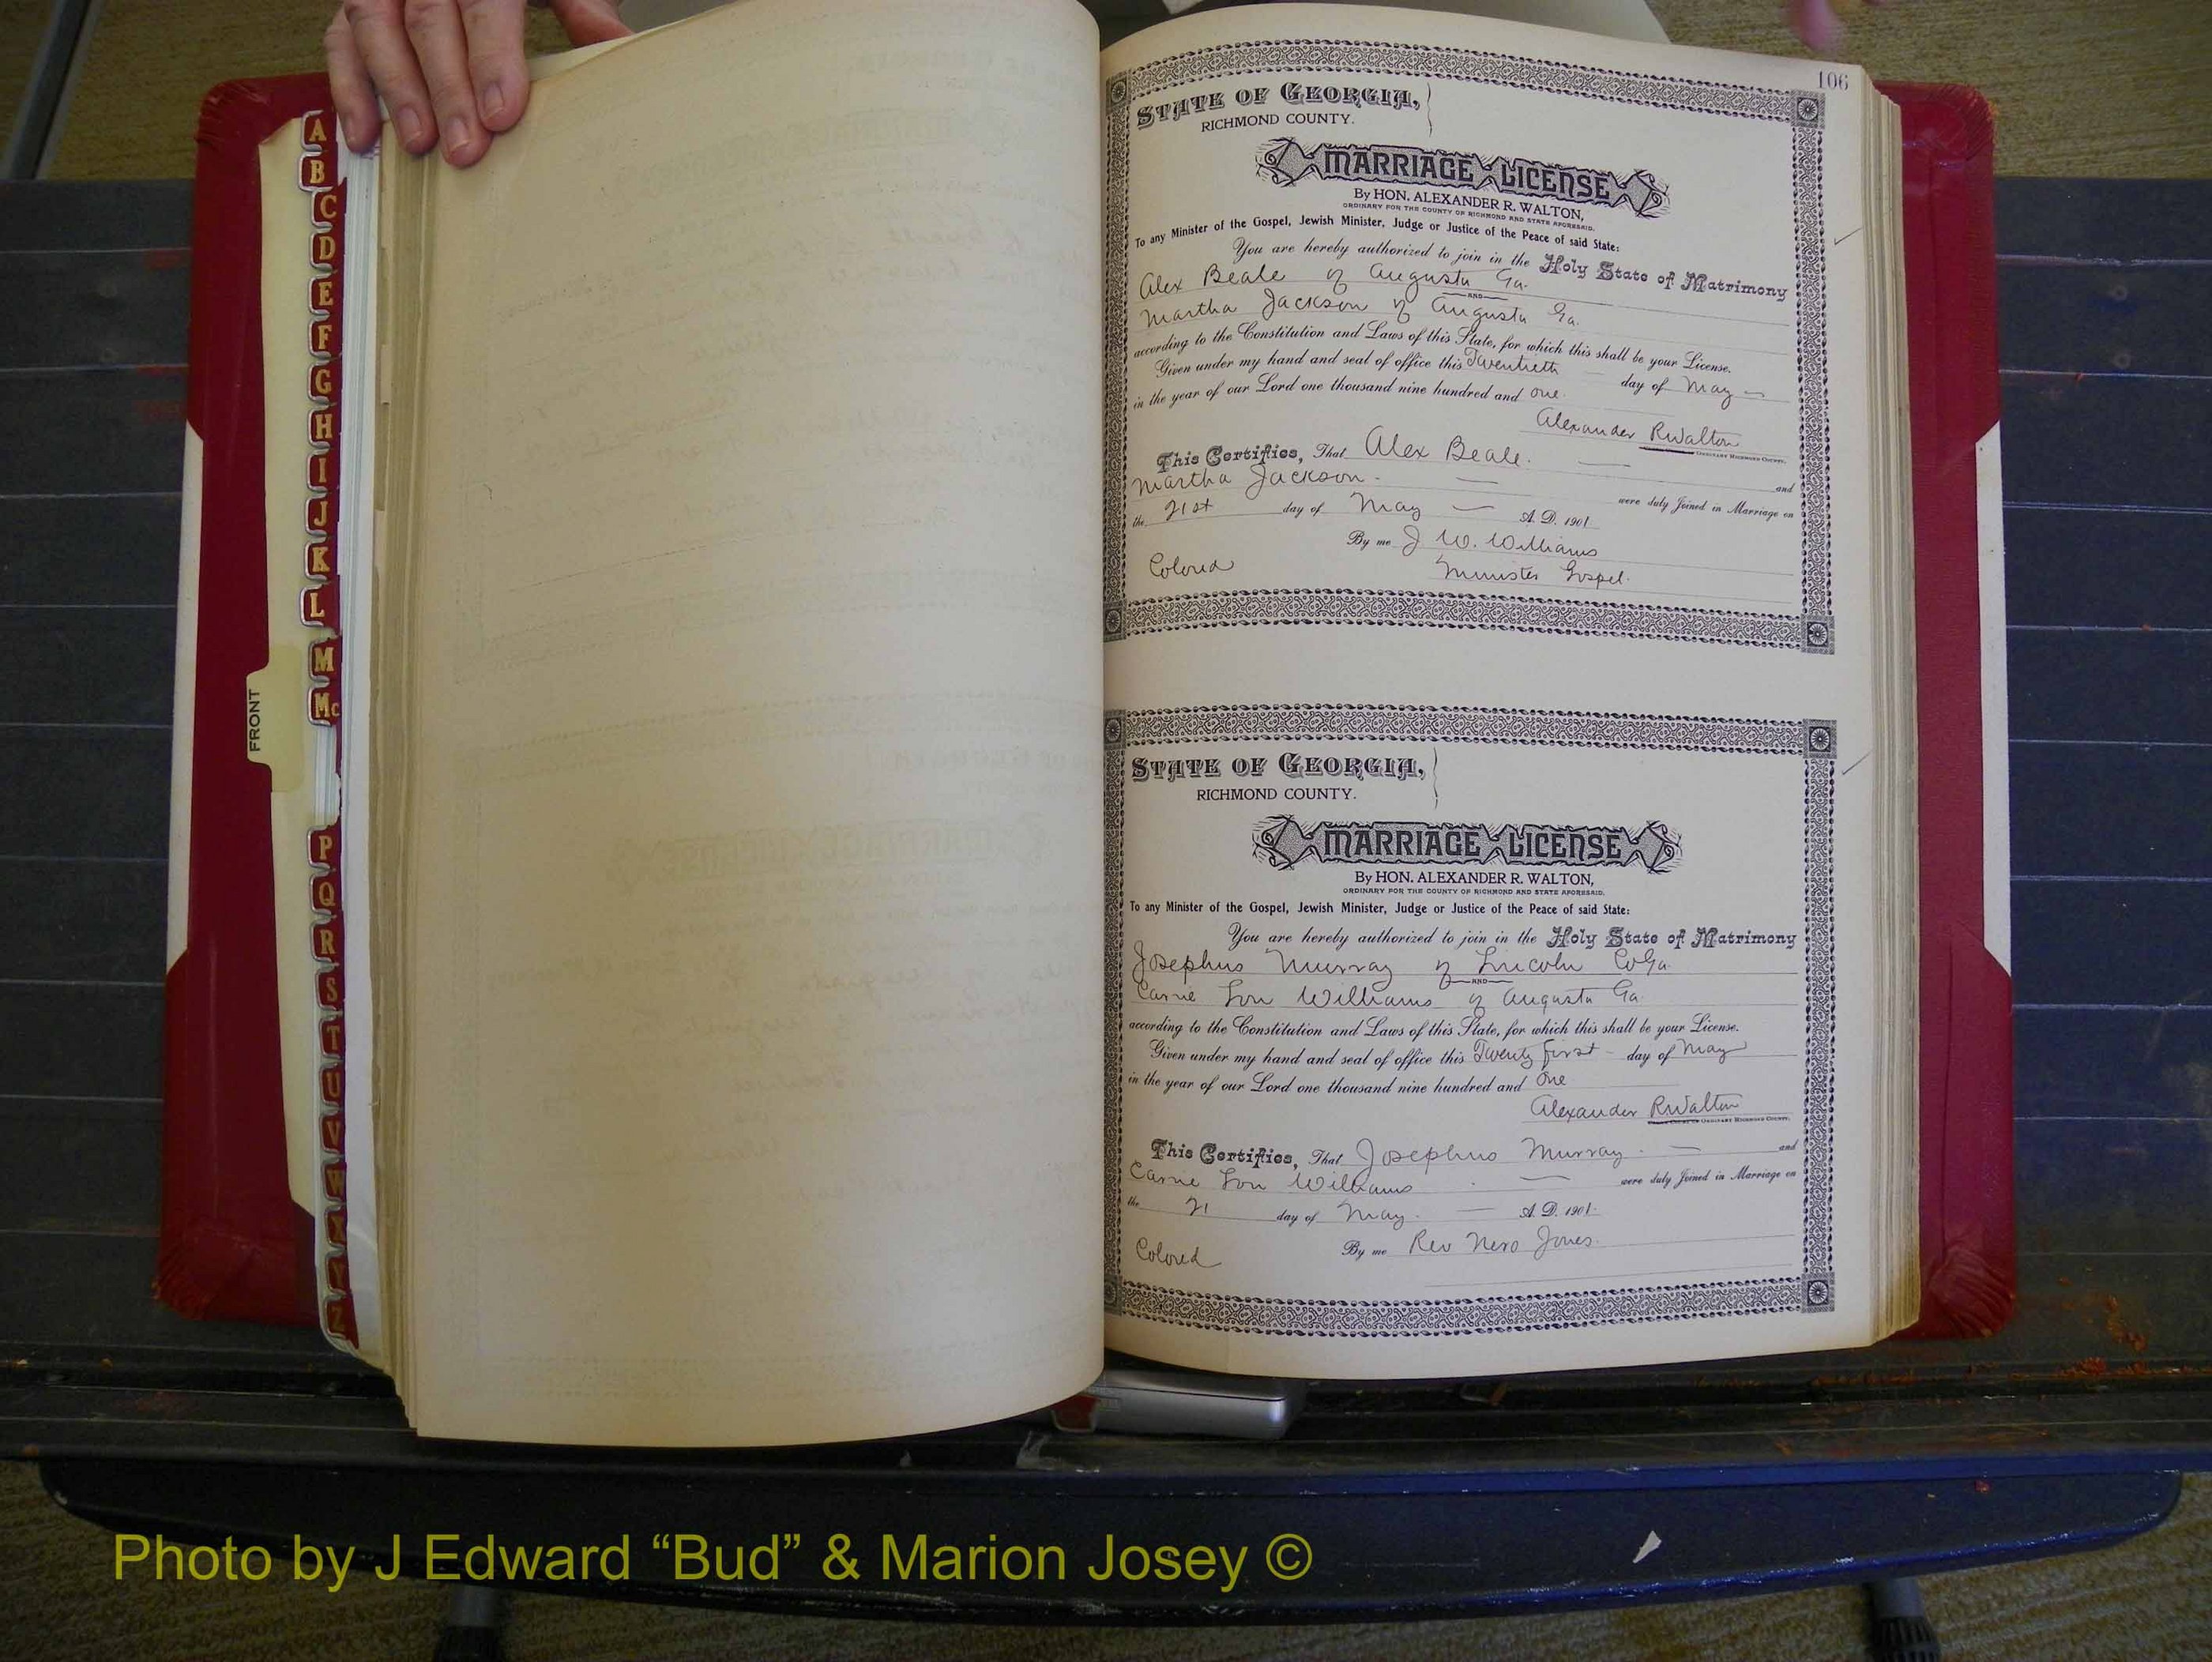 A
B
C
D
E
F
G
H
I
J
K
L
M
Mc
FRONT
P
Q
R
S
T
U
V
W
X
Y
Z
106
STATE OF GEORGIA,
RICHMOND COUNTY.
MARRIAGE LICENSE
By HON. ALEXANDER R. WALTON,
ORDINARY FOR THE COUNTY OF RICHMOND AND STATE AFORESAID.
To any Minister of the Gospel, Jewish Minister, Judge or Justice of the Peace of said State:
You are hereby authorized to join in the Holy State of Matrimony
Alex Beale of Augusta Ga.
AND
Martha Jackson of Augusta Ga.
according to the Constitution and Laws of this State, for which this shall be your License.
Given under my hand and seal of office this Twentieth day of May
in the year of our Lord one thousand nine hundred and one.
Alexander R Walton
ORDINARY RICHMOND COUNTY.
This Certifies, That Alex Beale. and
Martha Jackson. were duly Joined in Marriage on
the 21st day of May A. D. 1901
By me J W. Williams
Colored Minister Gospel.
STATE OF GEORGIA,
RICHMOND COUNTY.
MARRIAGE LICENSE
By HON. ALEXANDER R. WALTON,
ORDINARY FOR THE COUNTY OF RICHMOND AND STATE AFORESAID.
To any Minister of the Gospel, Jewish Minister, Judge or Justice of the Peace of said State:
You are hereby authorized to join in the Holy State of Matrimony
Josephus Murray of Lincoln Co Ga.
AND
Carrie Lou Williams of Augusta Ga.
according to the Constitution and Laws of this State, for which this shall be your License.
Given under my hand and seal of office this Twenty first day of May
in the year of our Lord one thousand nine hundred and One
Alexander R Walton
ORDINARY RICHMOND COUNTY.
This Certifies, That Josephus Murray. and
Carrie Lou Williams were duly Joined in Marriage on
the 21 day of May. A. D. 1901.
Colored By me Rev Nero Jones.
Photo by J Edward “Bud” & Marion Josey ©